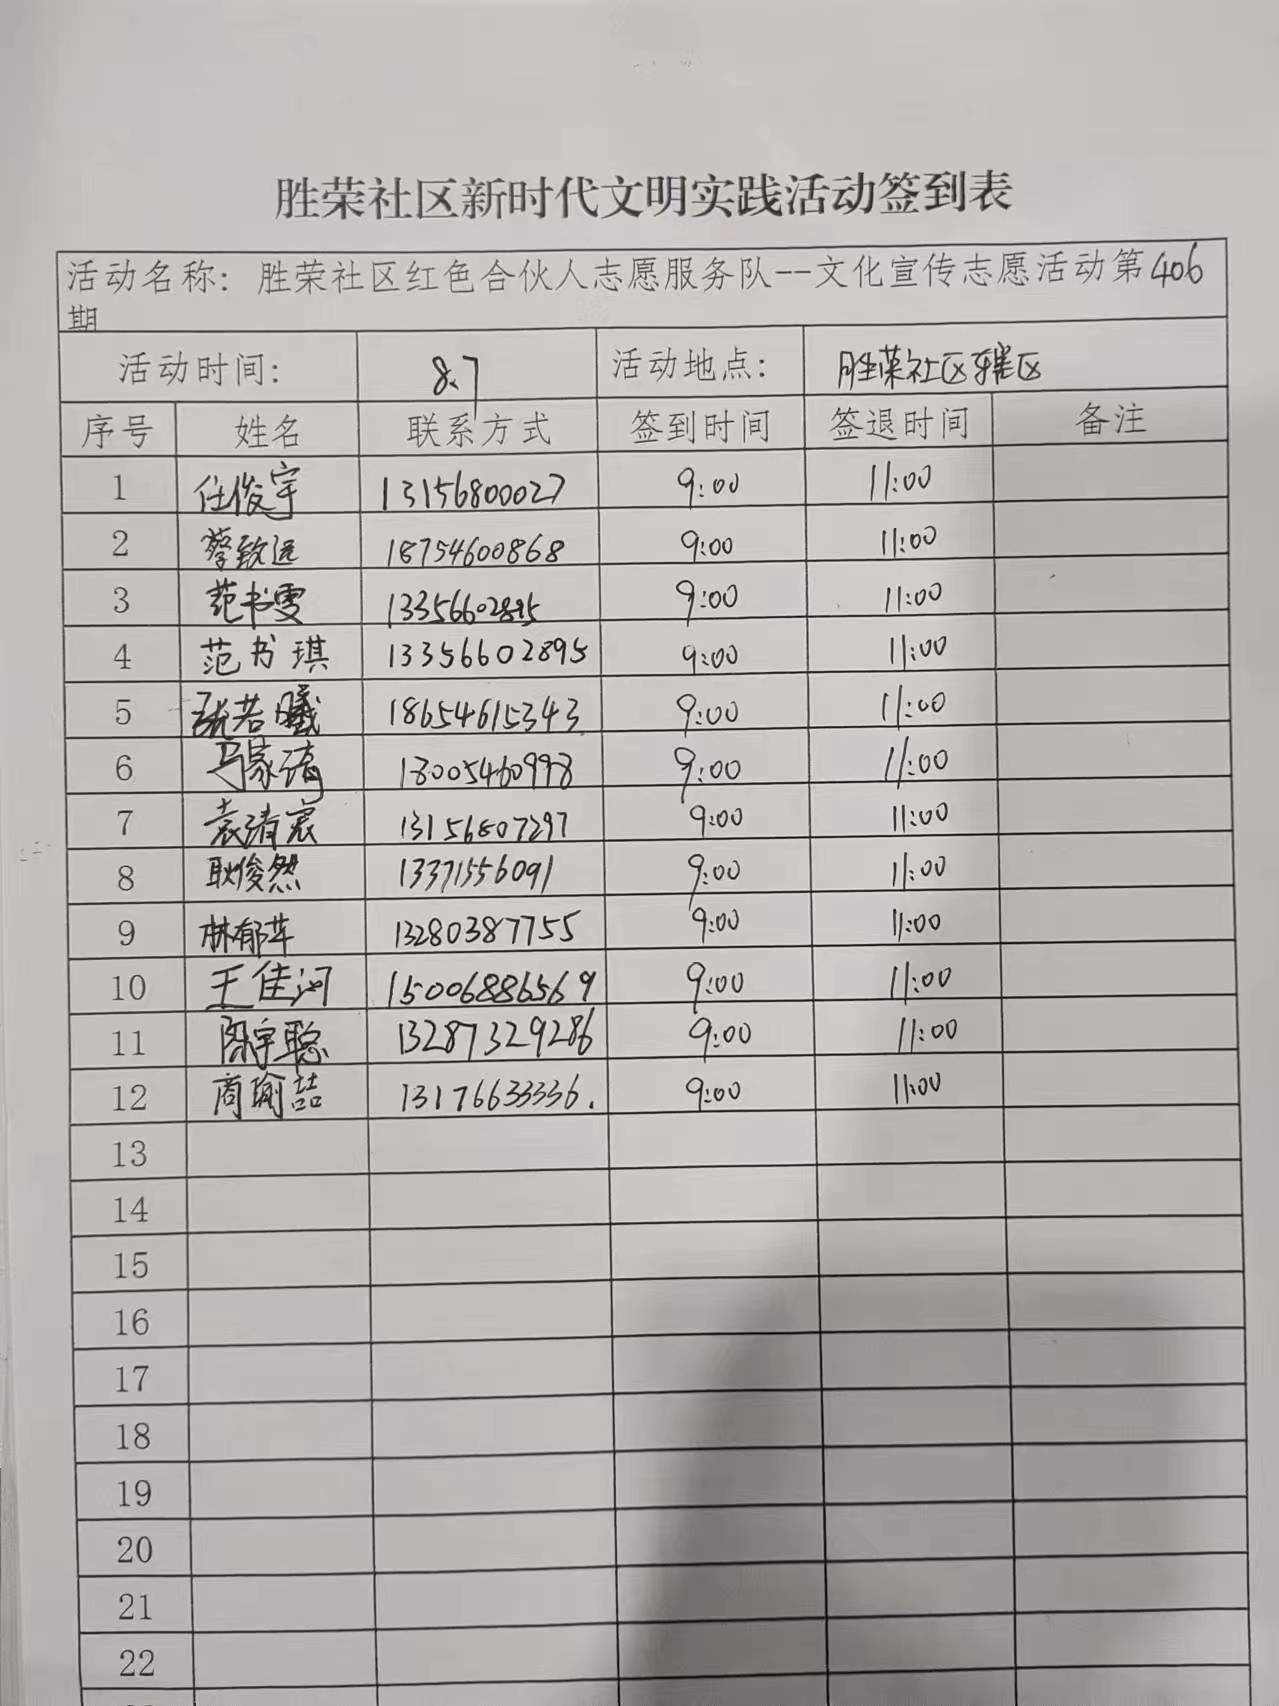 胜荣社区新时代文明实践活动签到表
活动名称：胜荣社区红色合伙人志愿服务队--文化宣传志愿活动第406
期
活动时间： 8.7 活动地点： 胜荣社区辖区
序号 姓名 联系方式 签到时间 签退时间 备注
1 任俊宇 13156800027 9:00 11:00
2 蔡致远 18754600868 9:00 11:00
3 范书雯 13356602895 9:00 11:00
4 范书琪 13356602895 9:00 11:00
5 张若曦 18654615343 9:00 11:00
6 马家涛 18005460998 9:00 11:00
7 袁清宸 13156807297 9:00 11:00
8 耿俊然 13371556091 9:00 11:00
9 林郁苹 13280387755 9:00 11:00
10 王佳 15006886569 9:00 11:00
11 陈宇聪 13287329286 9:00 11:00
12 商瑜喆 13176633336. 9:00 11:00
13
14
15
16
17
18
19
20
21
22